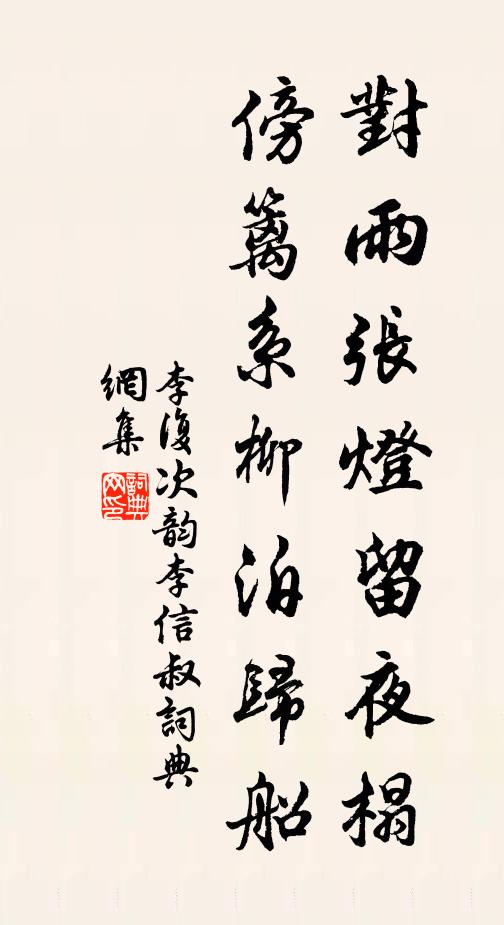 對雨張燈留夜榻
傍籬系柳泊歸船
李復次韵李信叔詞典
網集
詞典網印